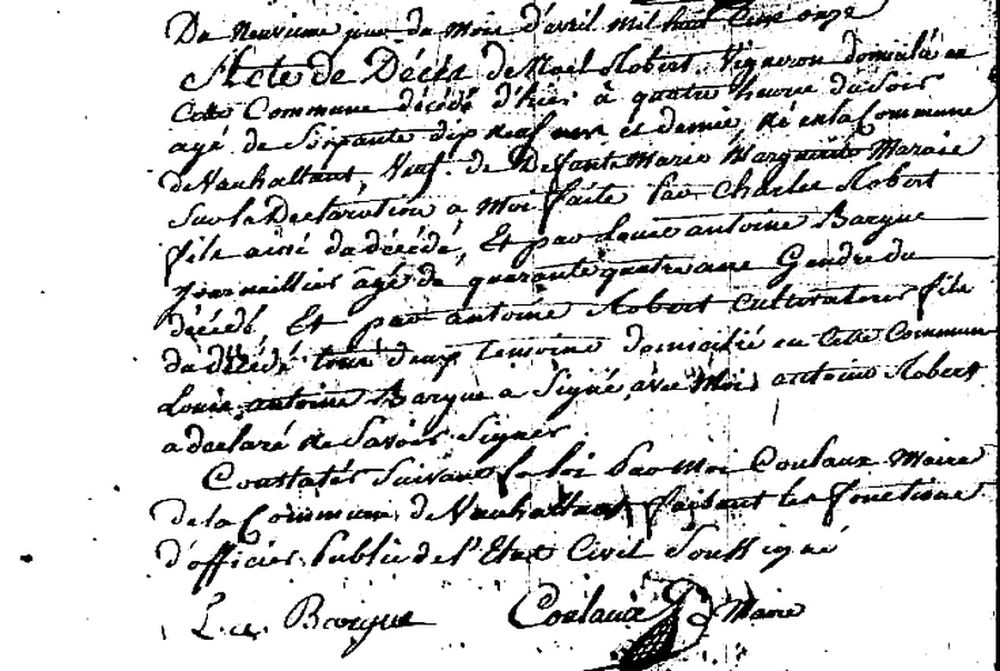 Du neuvieme jour du mois d'avril mil huit Cent onze
Acte de Décès de Noel Robert Vigneron domicilié en
Cette Commune décédé d'hier à quatre heure du soir
agé de Soixante dix neuf ans et demie, né en la Commune
de Vauhallant, Veuf de Defunte Marie Marguerite
Sur la Declaration a Moi faite par Charles Robert
fils ainé du décédé, Et par Louis antoine Bargue
journaillier âgé de quarante quatre ans Gendre du
décédé, Et par antoine Robert Cultivateur fils
du décédé tous deux temoins domicilié en Cette Commune
Louis antoine Bargue a Signé avec Moi antoine Robert
a declaré ne Savoir Signer
Constatér Suivant la loi par moi Coulaux Maire
de la Commune de Vauhallant faisant les fonctions
d'officier Public de l'Etat Civil Soussigné
L. a. Bargue Coulaux Maire